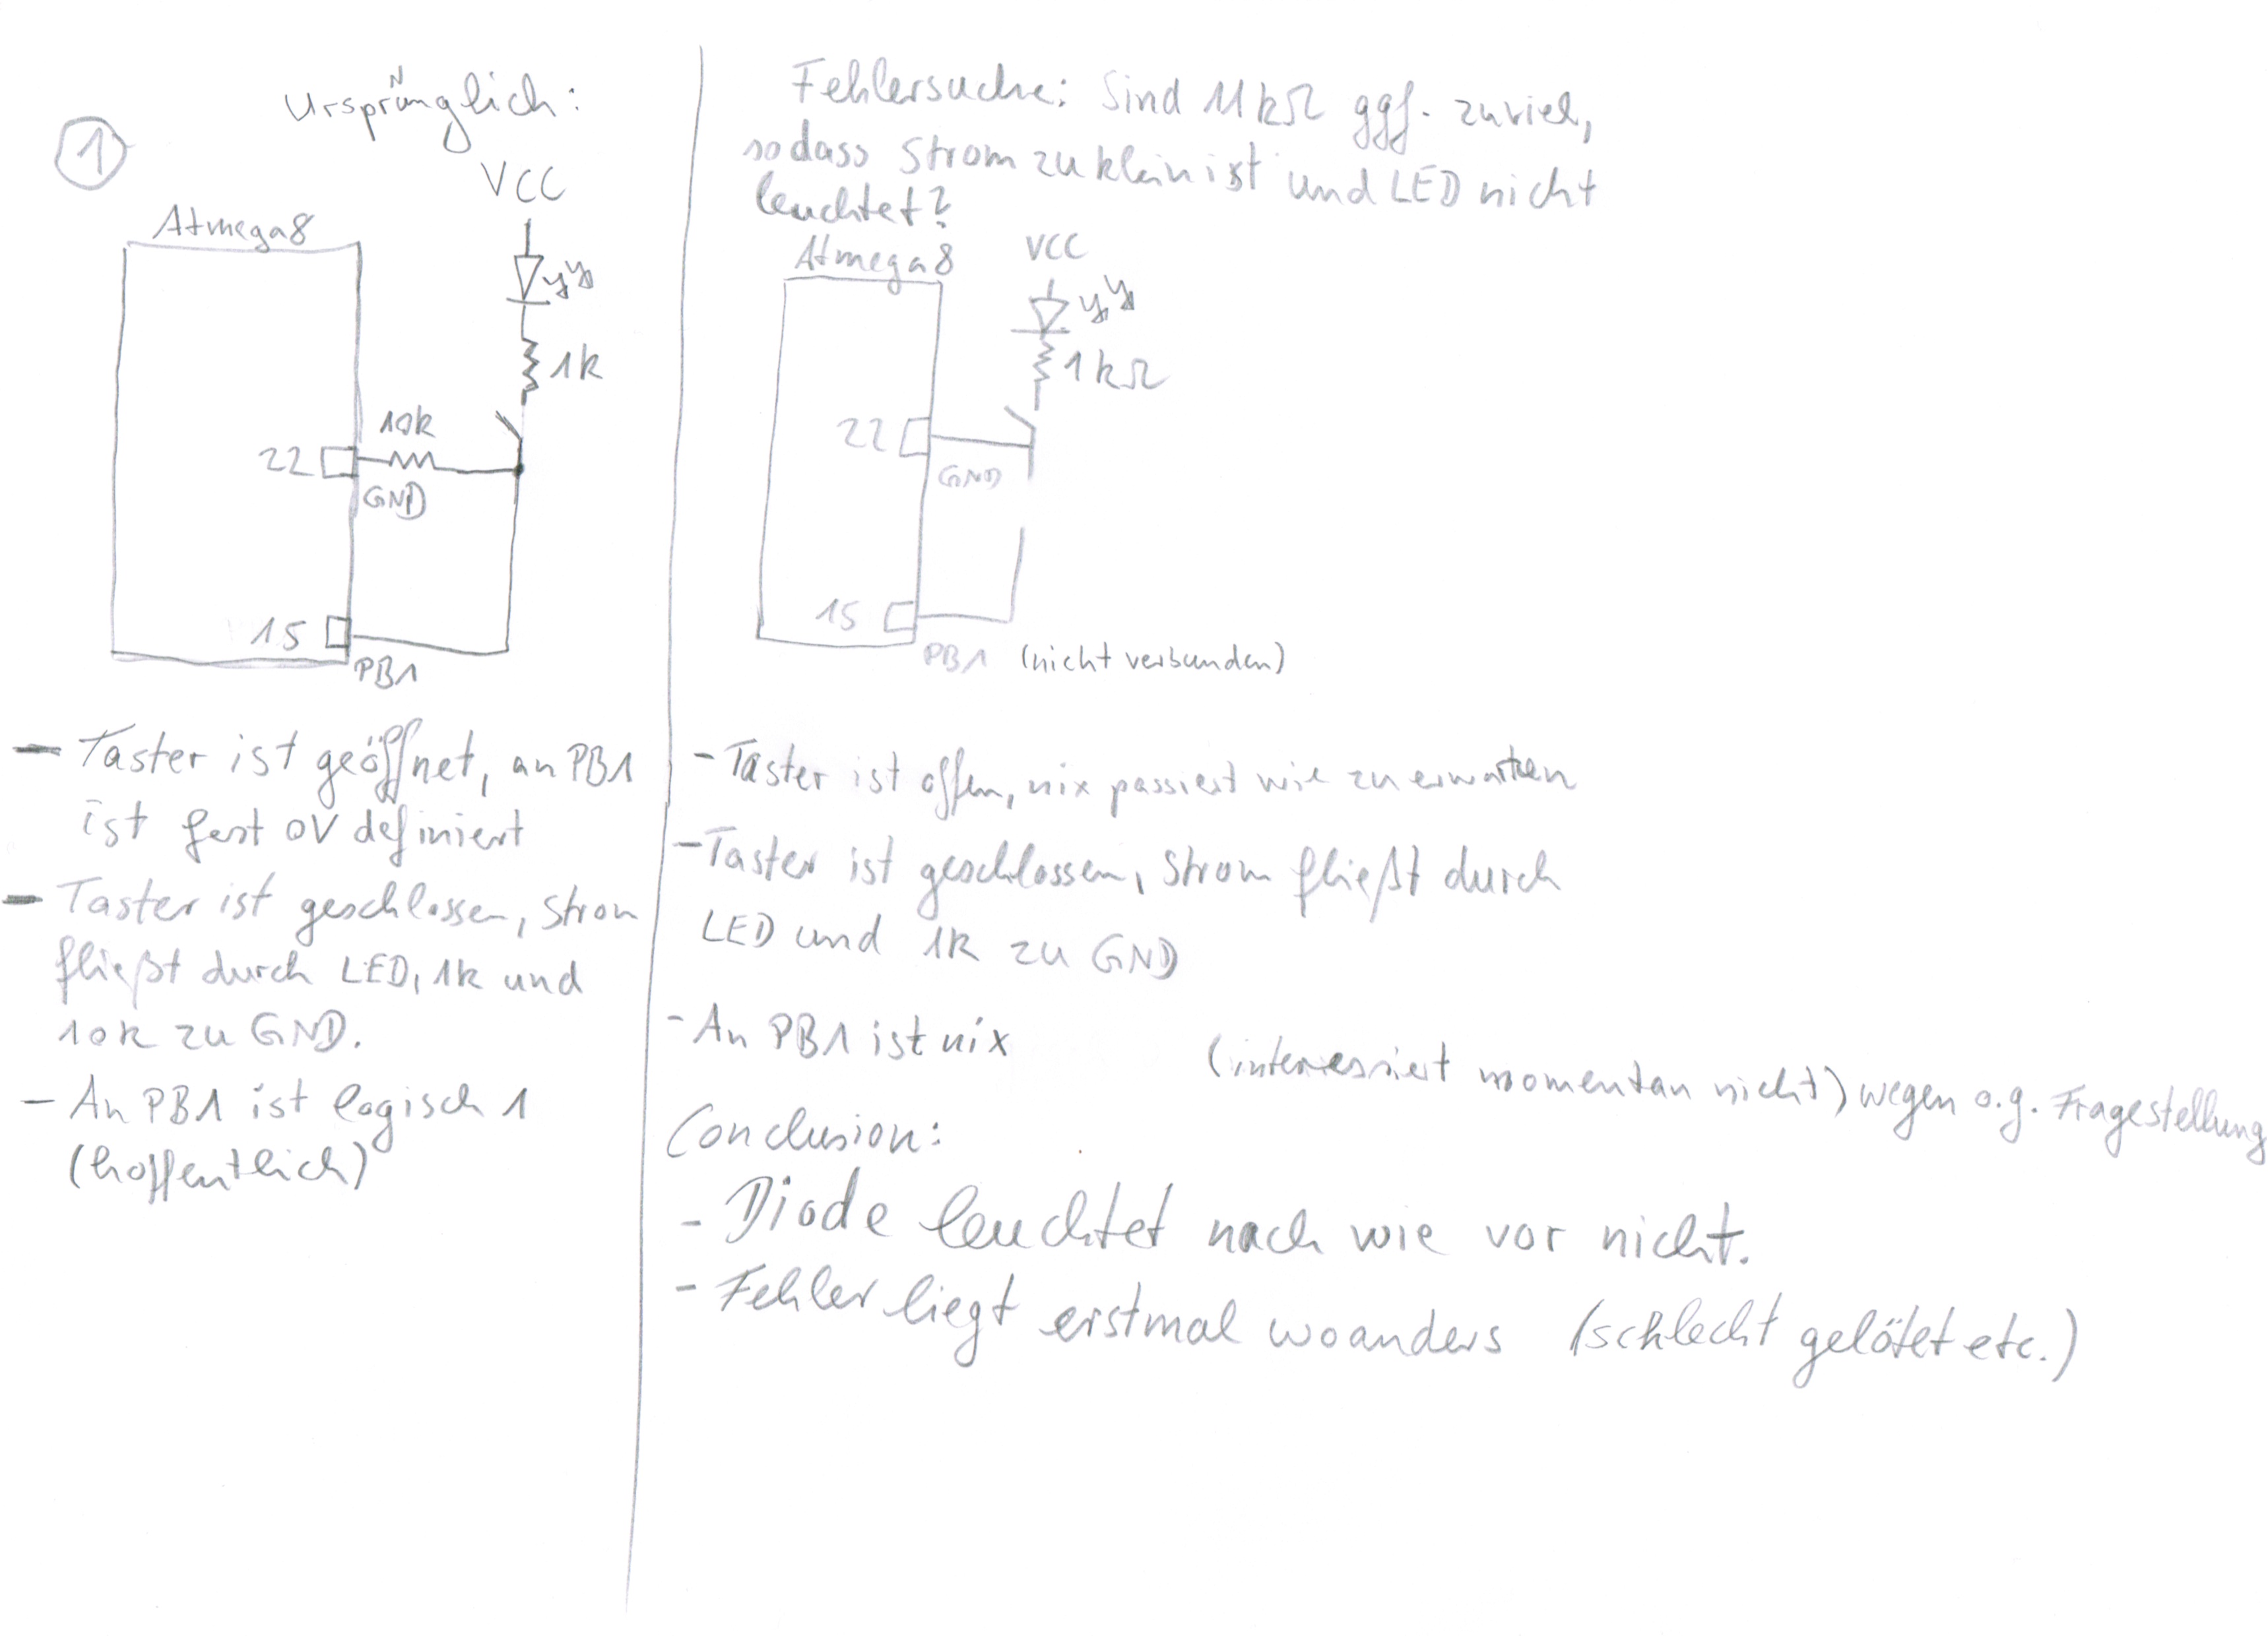 1
Ursprünglich:
VCC
Atmega8
1k
10k
22
GND
15
PB1
- Taster ist geöffnet, an PB1
ist fest 0V definiert
- Taster ist geschlossen, Strom
fließt durch LED, 1k und
10k zu GND.
- An PB1 ist logisch 1
(hoffentlich)
Fehlersuche: Sind 11kΩ ggf. zuviel,
sodass Strom zu klein ist und LED nicht
leuchtet?
Atmega8
VCC
1kΩ
22
GND
15
PB1 (nicht verbunden)
- Taster ist offen, nix passiert wie zu erwarten
- Taster ist geschlossen, Strom fließt durch
LED und 1k zu GND
- An PB1 ist nix (interessiert momentan nicht) wegen o.g. Fragestellung
Conclusion:
- Diode leuchtet nach wie vor nicht.
- Fehler liegt erstmal woanders (schlecht gelötet etc.)